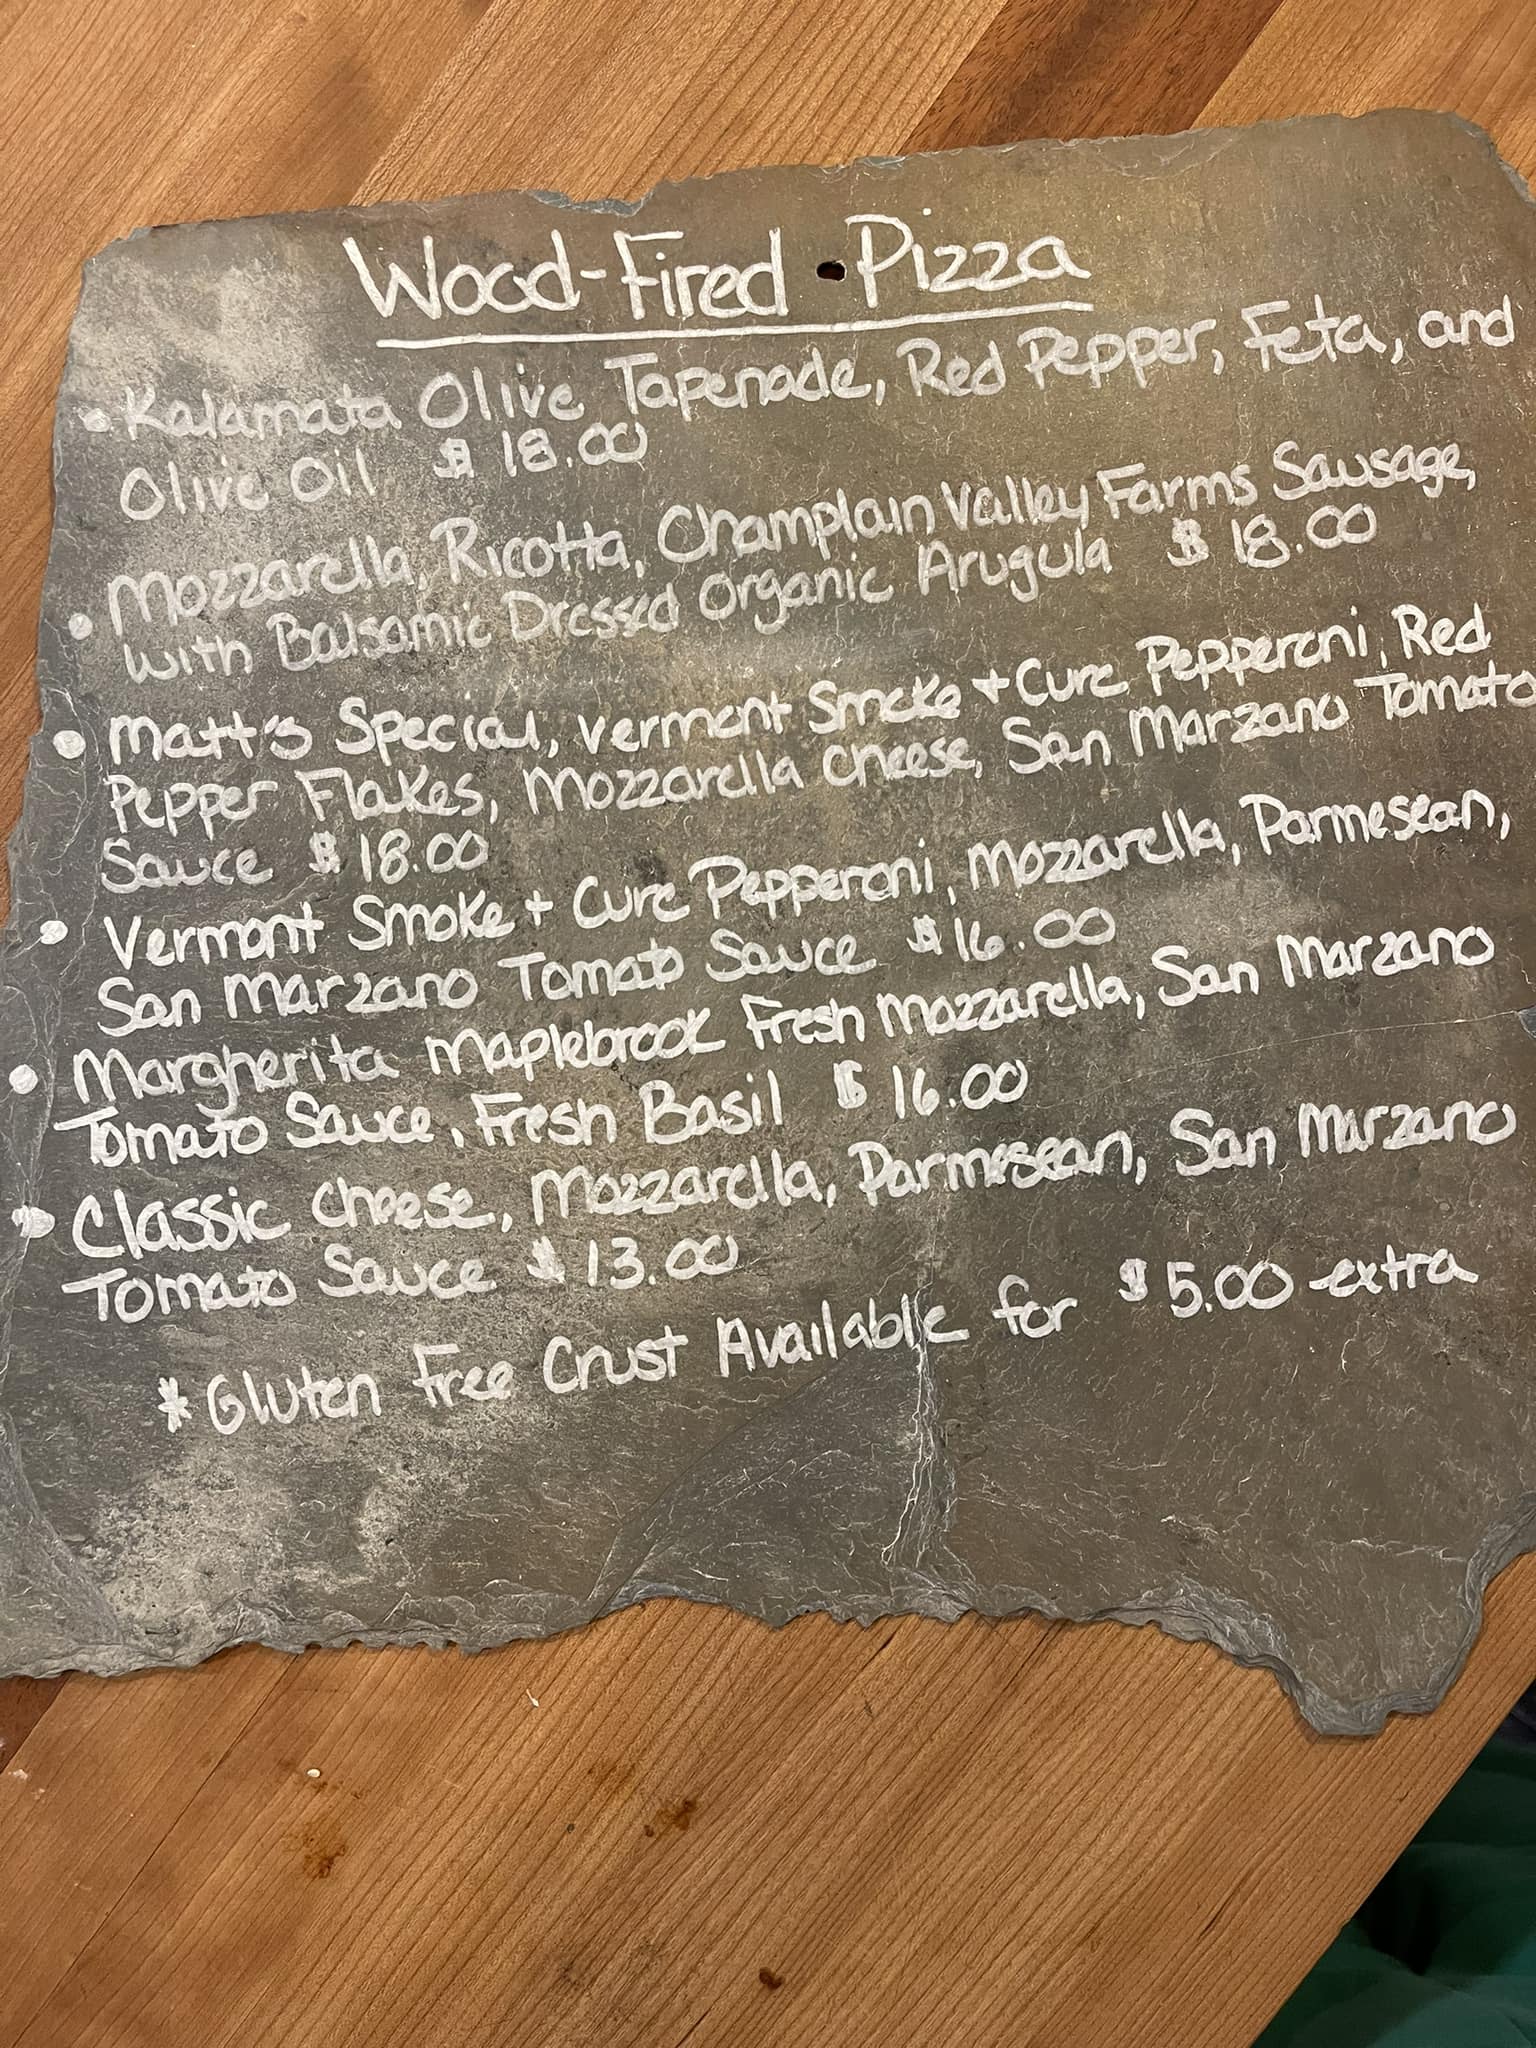 Wood-Fired Pizza
• Kalamata Olive Tapenade, Red Pepper, Feta, and
Olive Oil $18.00
• Mozzarella, Ricotta, Champlain Valley Farms Sausage,
with Balsamic Dressed Organic Arugula $18.00
• Matt's Special, Vermont Smoke + Cure Pepperoni, Red
Pepper Flakes, Mozzarella Cheese, San Marzano Tomato
Sauce $18.00
• Vermont Smoke + Cure Pepperoni, Mozzarella, Parmesean,
San Marzano Tomato Sauce $16.00
• Margherita Maplebrook Fresh Mozzarella, San Marzano
Tomato Sauce, Fresh Basil $16.00
• Classic Cheese, Mozzarella, Parmesean, San Marzano
Tomato Sauce $13.00
*Gluten Free Crust Available for $5.00 extra